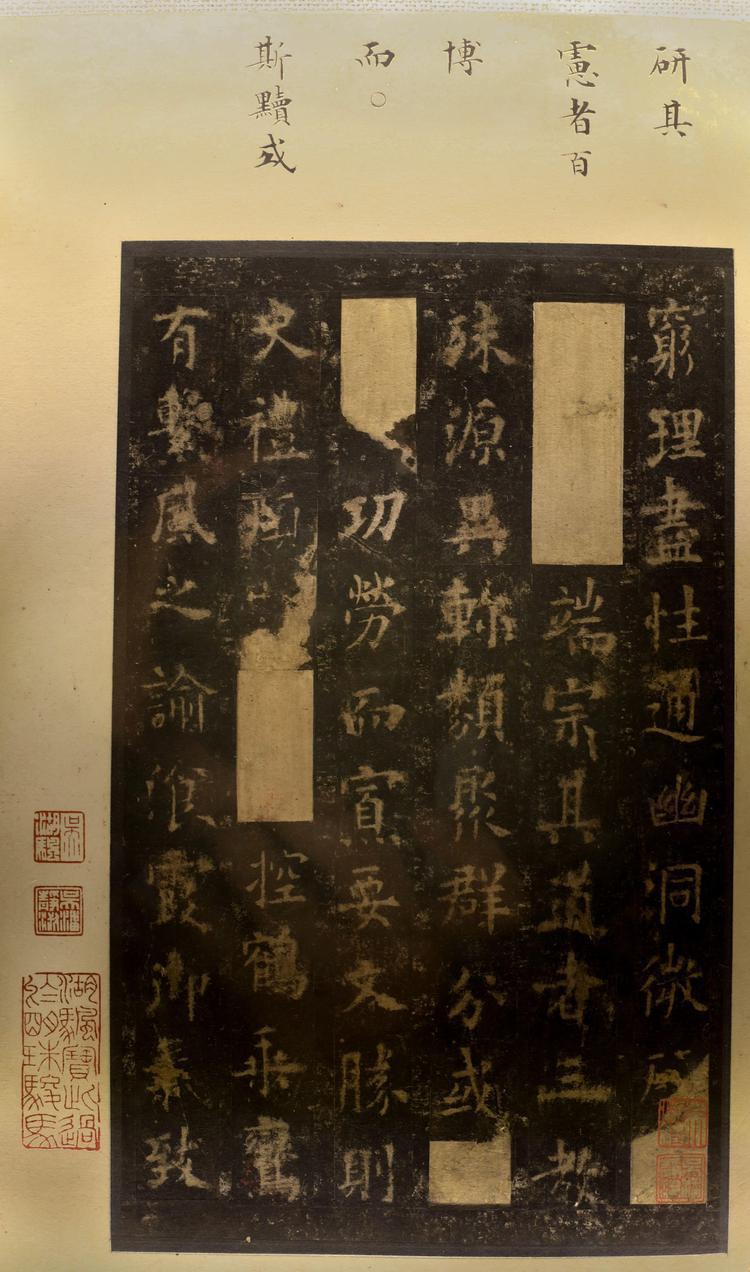 研其
憲者百
博
而○
斯黷或
窮理盡性通幽洞微研
端宗其道者三教
殊源異軫類聚群分或
功勞而寡要文勝則
史禮煩控鶴乘鸞
有繫風之諭飡霞御氣致